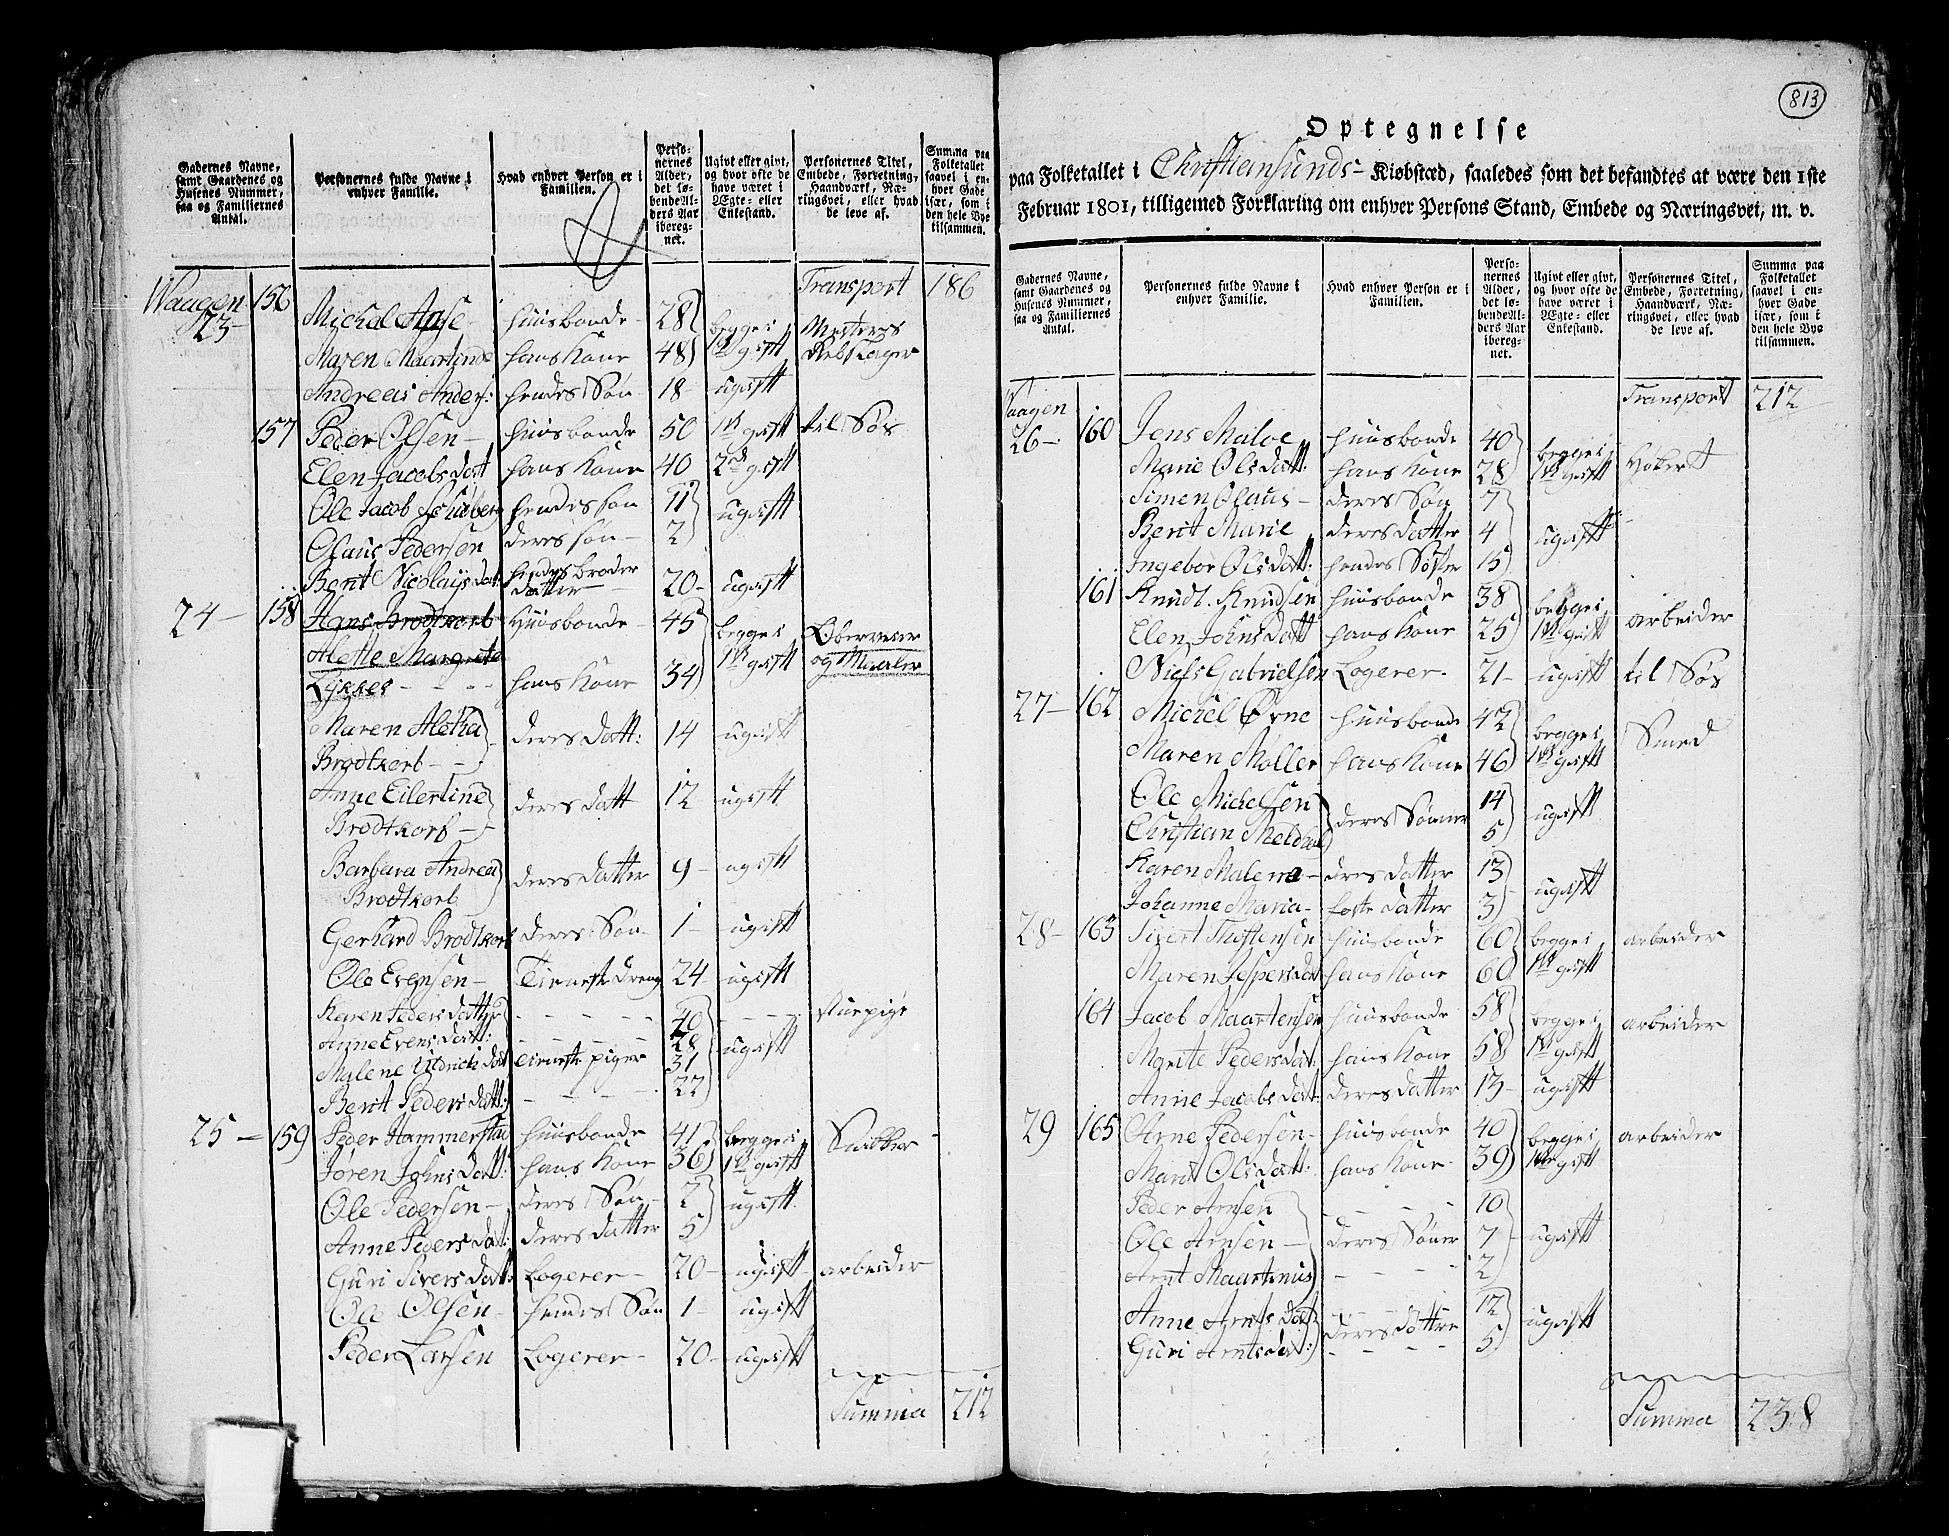 Gadernes Navne, samt Gaardenes og Husenes Nummer, saa og Familiernes Antal.
Personernes fulde Navne i enhver Familie.
Hvad enhver Person er i Familien.
Personernes Alder, det løbende Alders Aar iberegnet.
Ugivt eller givt, og hvor ofte de have været i Ægte- eller Enkestand.
Personernes Titel, Embede, Forretning, Haandværk, Næringsvei, eller hvad de leve af.
Summa paa Folketallet saavel i enhver Gade især, som i den hele Bye tilsammen.
Transport 186
Waagen 23- 156 Michal huusbonde 28 begge i 1te gift Mester
Maren hans Kone 48 Rebslager
Andreas Anders: hendes Søn 18- ugift
157 Peder Olsen- huusbonde 50 1te gift til Søs
Elen Jacobsdatt hans Kone 40 2den gift
Ole Jacob hendes søn 11 ugift
Olaus Pedersen deres søn- 2
Berit Nicolaysdat: hendes broder datter 20- ugift
24- 158 Hans Brodtkorb Huusbonde- 45 begge i 1te gift
og Maaler
Alette Margreta
Lykke - - - hans Kone 34
Maren Aletha
Brodtkorb - - deres datt: 14 ugift
Anne Eilertine
Brodtkorb - deres datt 12 ugift
Barbara Andrea
Brodtkorb deres datter 9- ugift
Gerhard Brodtkorb deres Søn- 1- ugift
Ole Evensen- Tieneste dreng 24- ugift
Karen Pedersdatter - - - - - 40 - - - - stuepige
Anne Evensdatt: - - - - - 28 ugift
Malene datt tieneste piger 31
Berit Pedersdatt: - - - - 22
25- 159 Peder Hammerstad huusbonde 41 begge i Snidker
Jøren Johnsdatt: hans Kone 36 1te gift
Ole Pedersen- deres Søn- 2 ugift
Anne Pedersdat: deres datter 5
Guri Siversdatt: Logerer- 20- ugift- arbeider
Ole Olsen- hendes Søn 1- ugift
Peder Larsen Logerer- 20- ugift
Summa 212
813
Optegnelse
paa Folketallet i Christiansunds- Kiøbstæd, saaledes som det befandtes at være den 1ste
Februar 1801, tilligemed Forklaring om enhver Persons Stand, Embede og Næringsvei, m. v.
Gadernes Navne, samt Gaardenes og Husenes Nummer, saa og Familiernes Antal.
Personernes fulde Navne i enhver Familie.
Hvad enhver Person er i Familien.
Personernes Alder, det løbende Alders Aar iberegnet.
Ugivt eller givt, og hvor ofte de have været i Ægte- eller Enkestand.
Personernes Titel, Embede, Forretning, Haandværk, Næringsvei, eller hvad de leve af.
Summa paa Folketallet saavel i enhver Gade især, som i den hele Bye tilsammen.
Transport 212
Waagen 26-. 160 Jens Maloe huusbonde 40 begge i
Marie Olsdatt: hans Kone 28 1te gift
Simen Olaus- deres Søn 7
Berit Marie deres datter 4 ugift
Ingebor Olsdatt: hendes Søster 15
161 Knudt. Knudsen huusbonde 38 begge i arbeider
Elen Johnsdatt hans Kone 25 1te gift
Niels Gabrielsen Logerer- 21- ugift til Søs
27- 162 Michel Ørne huusbonde 42 begge i Smed
Maren Møller hans Kone 46 1te gift
Ole Michelsen deres Sønner 14 ugift
Christian 5
Karen Malena- deres datter 13 ugift
Johanne Maria- foste datter 3
28- 163 Sivert huusbonde 60 begge i arbeider
Maren Jespersdat hans Kone 60 1te gift
164 Jacob Maartensen huusbonde 58 begge i arbeider
Marite Pedersdat: hans Kone 58 1te gift
Anne Jacobsdat: deres datter 13- ugift
29 165 Arne Pedersen- huusbonde 40 begge i arbeider
Marit Olsdatt: hans Kone- 39 1te gift
Peder Arnsen - - - - 10
Ole Arnsen- deres Sønner 7- ugift
Arnt Maartinus - - - - 2
Anne Arntsdat - - - - 12 ugift
Guri Arntsdat: deres døttre 5
Summa 238